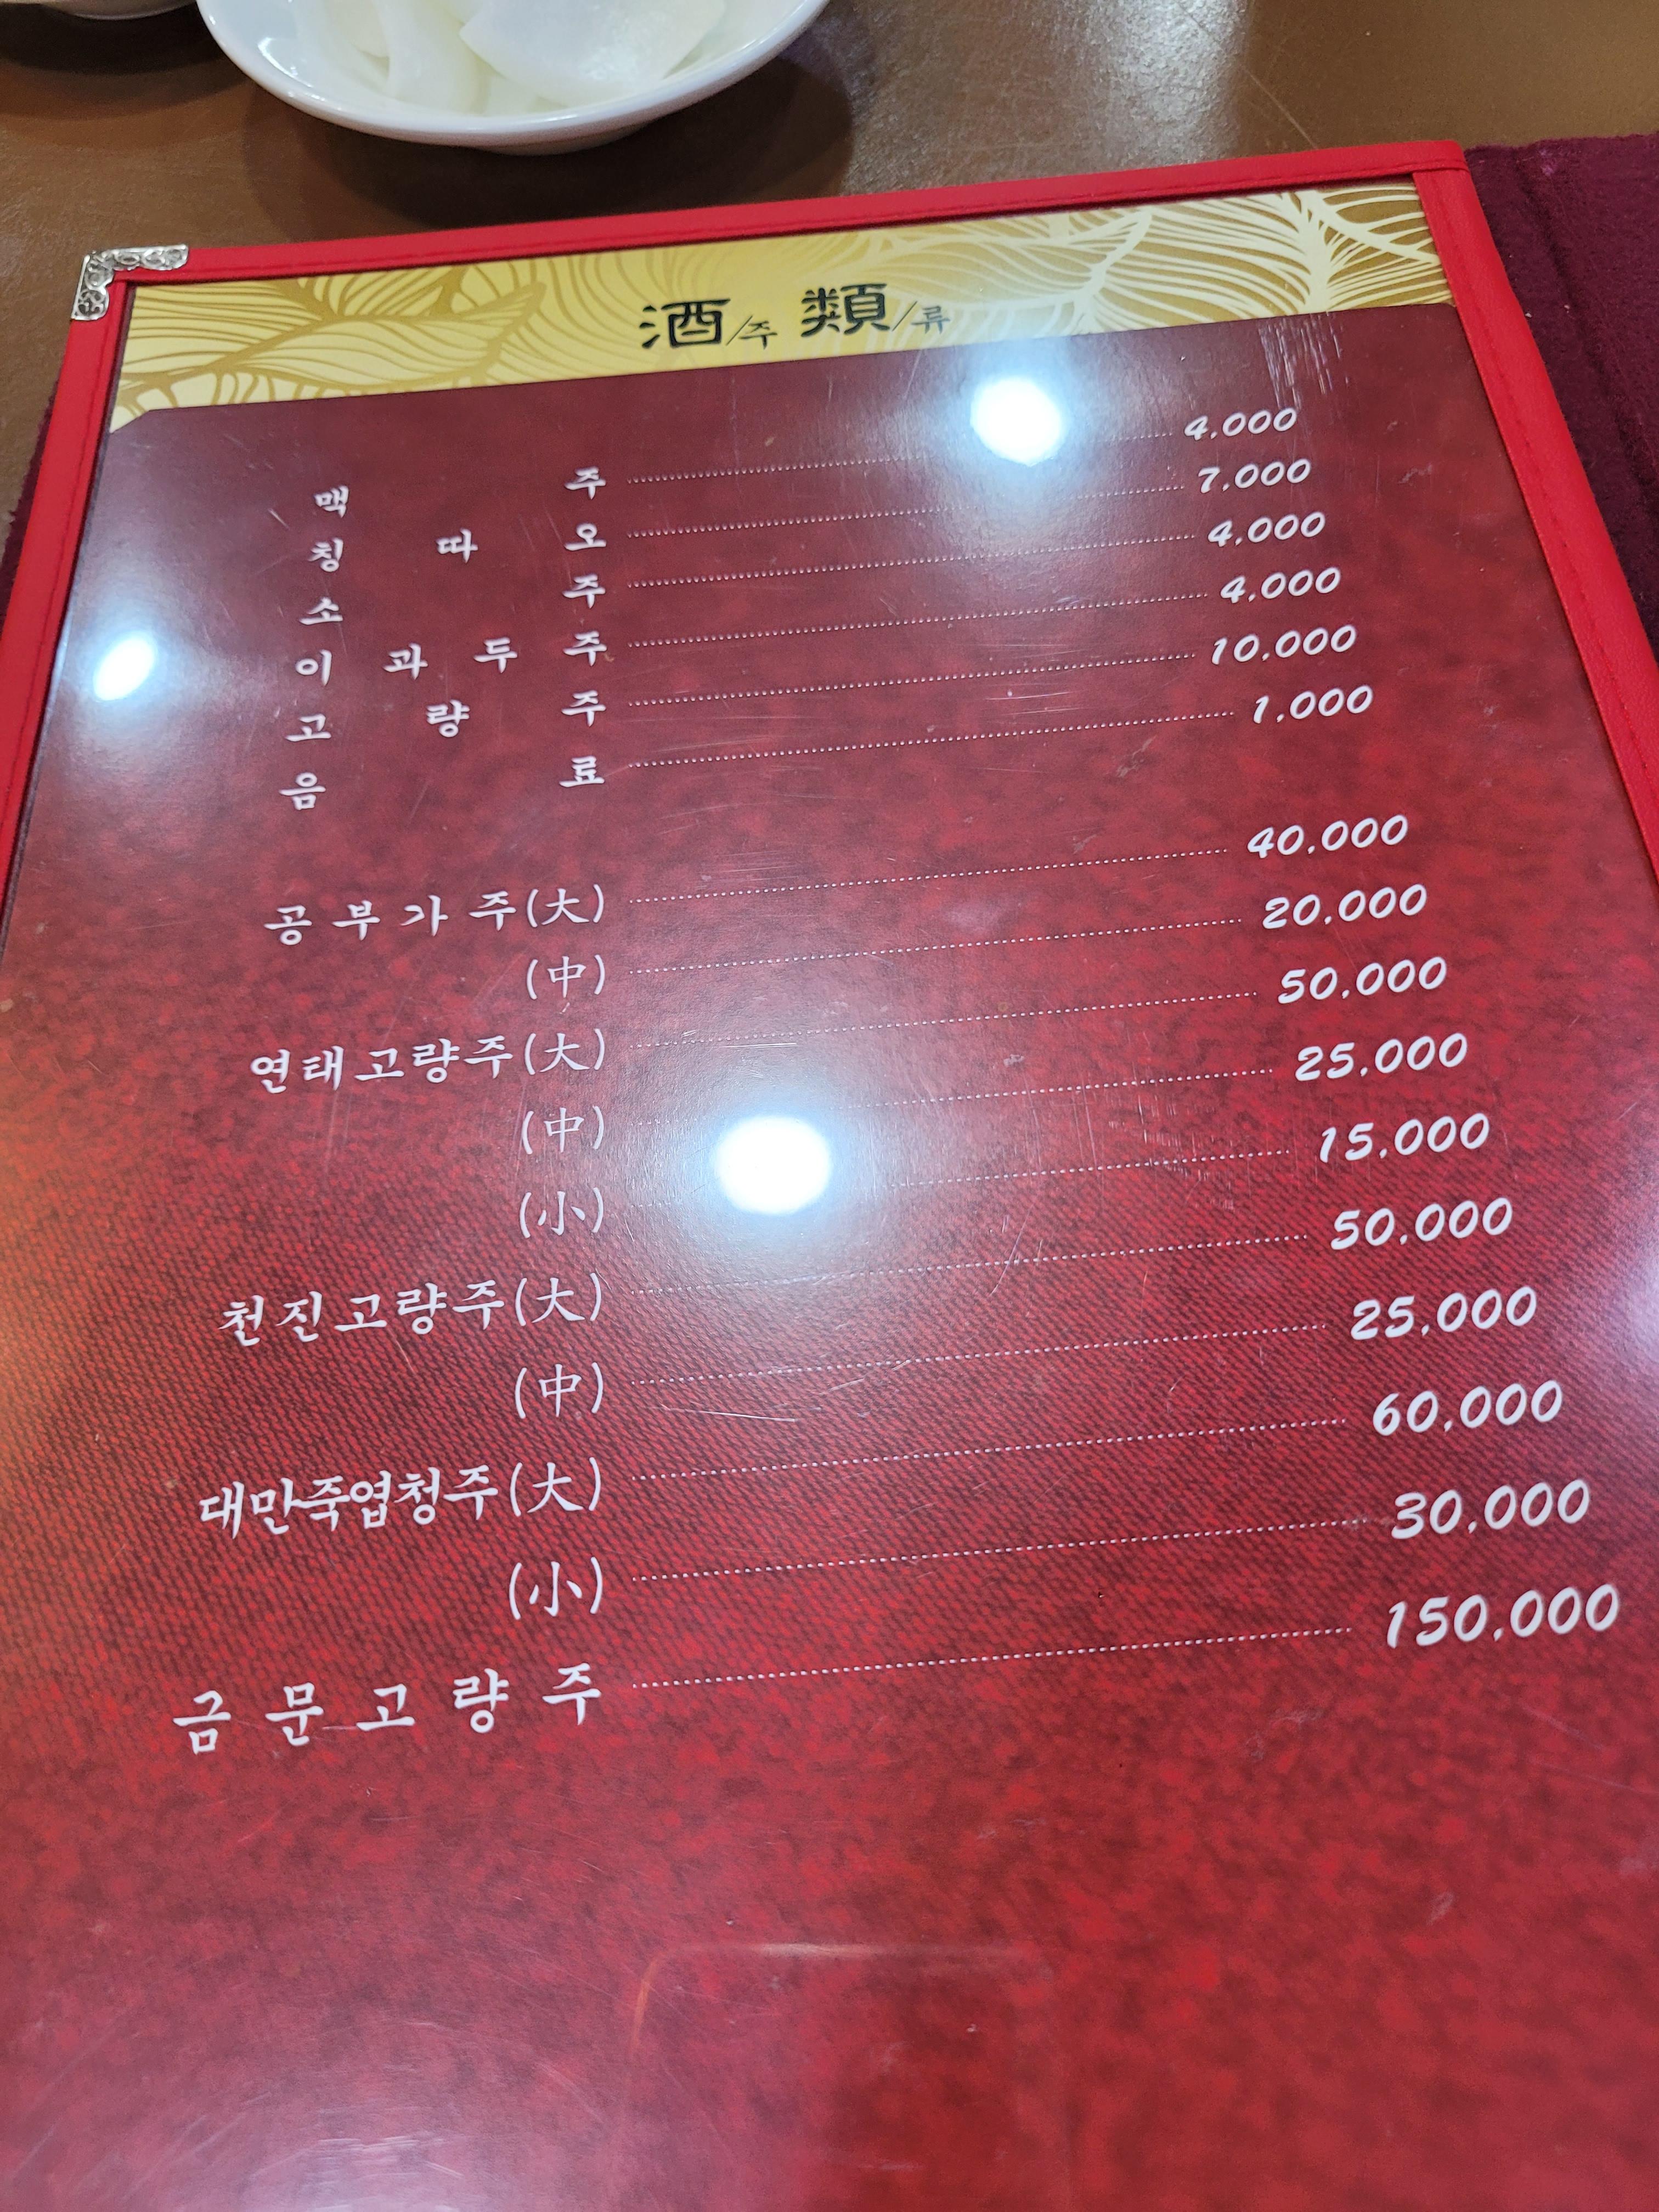 酒/주 類/류
맥주 4,000
칭따오 7,000
소주 4,000
이과두주 4,000
고량주 10,000
음료 1,000
공부가주(大) 40,000
(中) 20,000
연태고량주(大) 50,000
(中) 25,000
(小) 15,000
천진고량주(大) 50,000
(中) 25,000
대만죽엽청주(大) 60,000
(小) 30,000
금문고량주 150,000